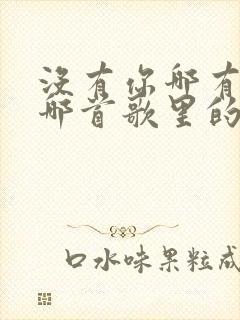 没有你哪有
哪首歌里的
口水味果粒成